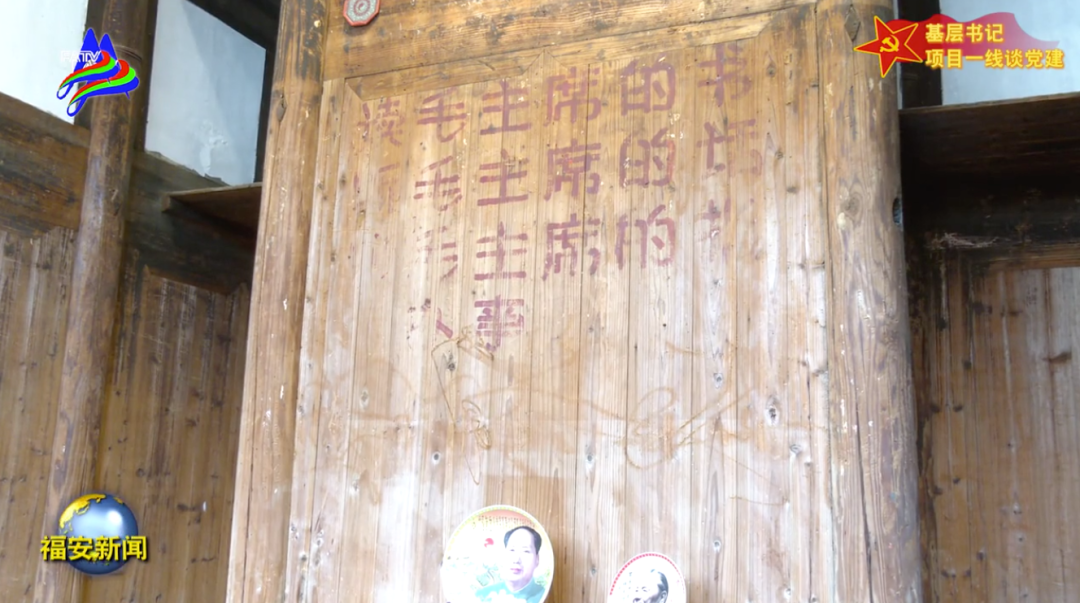 基层书记
项目一线谈党建
读毛主席的书
听毛主席的话
毛主席的
事
福安新闻